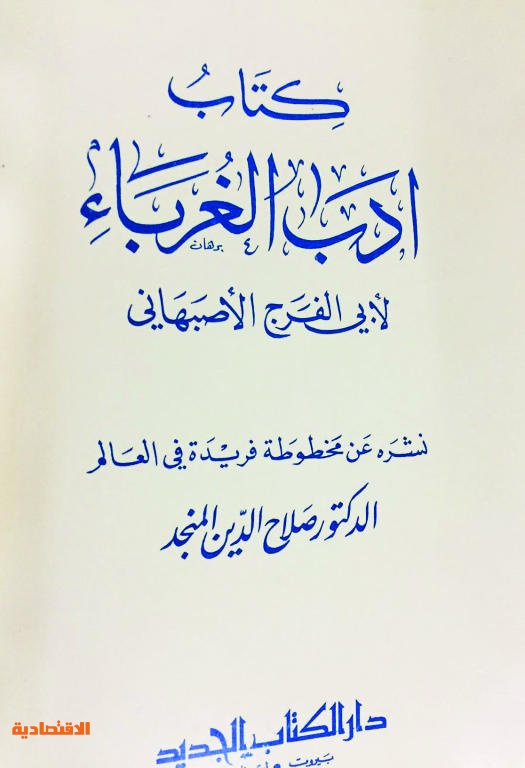 كِتَابُ
أدَبُ الغُرَبَاءِ
برهان
لأبي الفَرَج الأصبَهَاني
نشرَه عَن مَخطوطَة فريدَة في العَالم
الدكتور صَلاح الدّين المنجد
دار الكتاب الجديد
بيروت
الاقتصادية